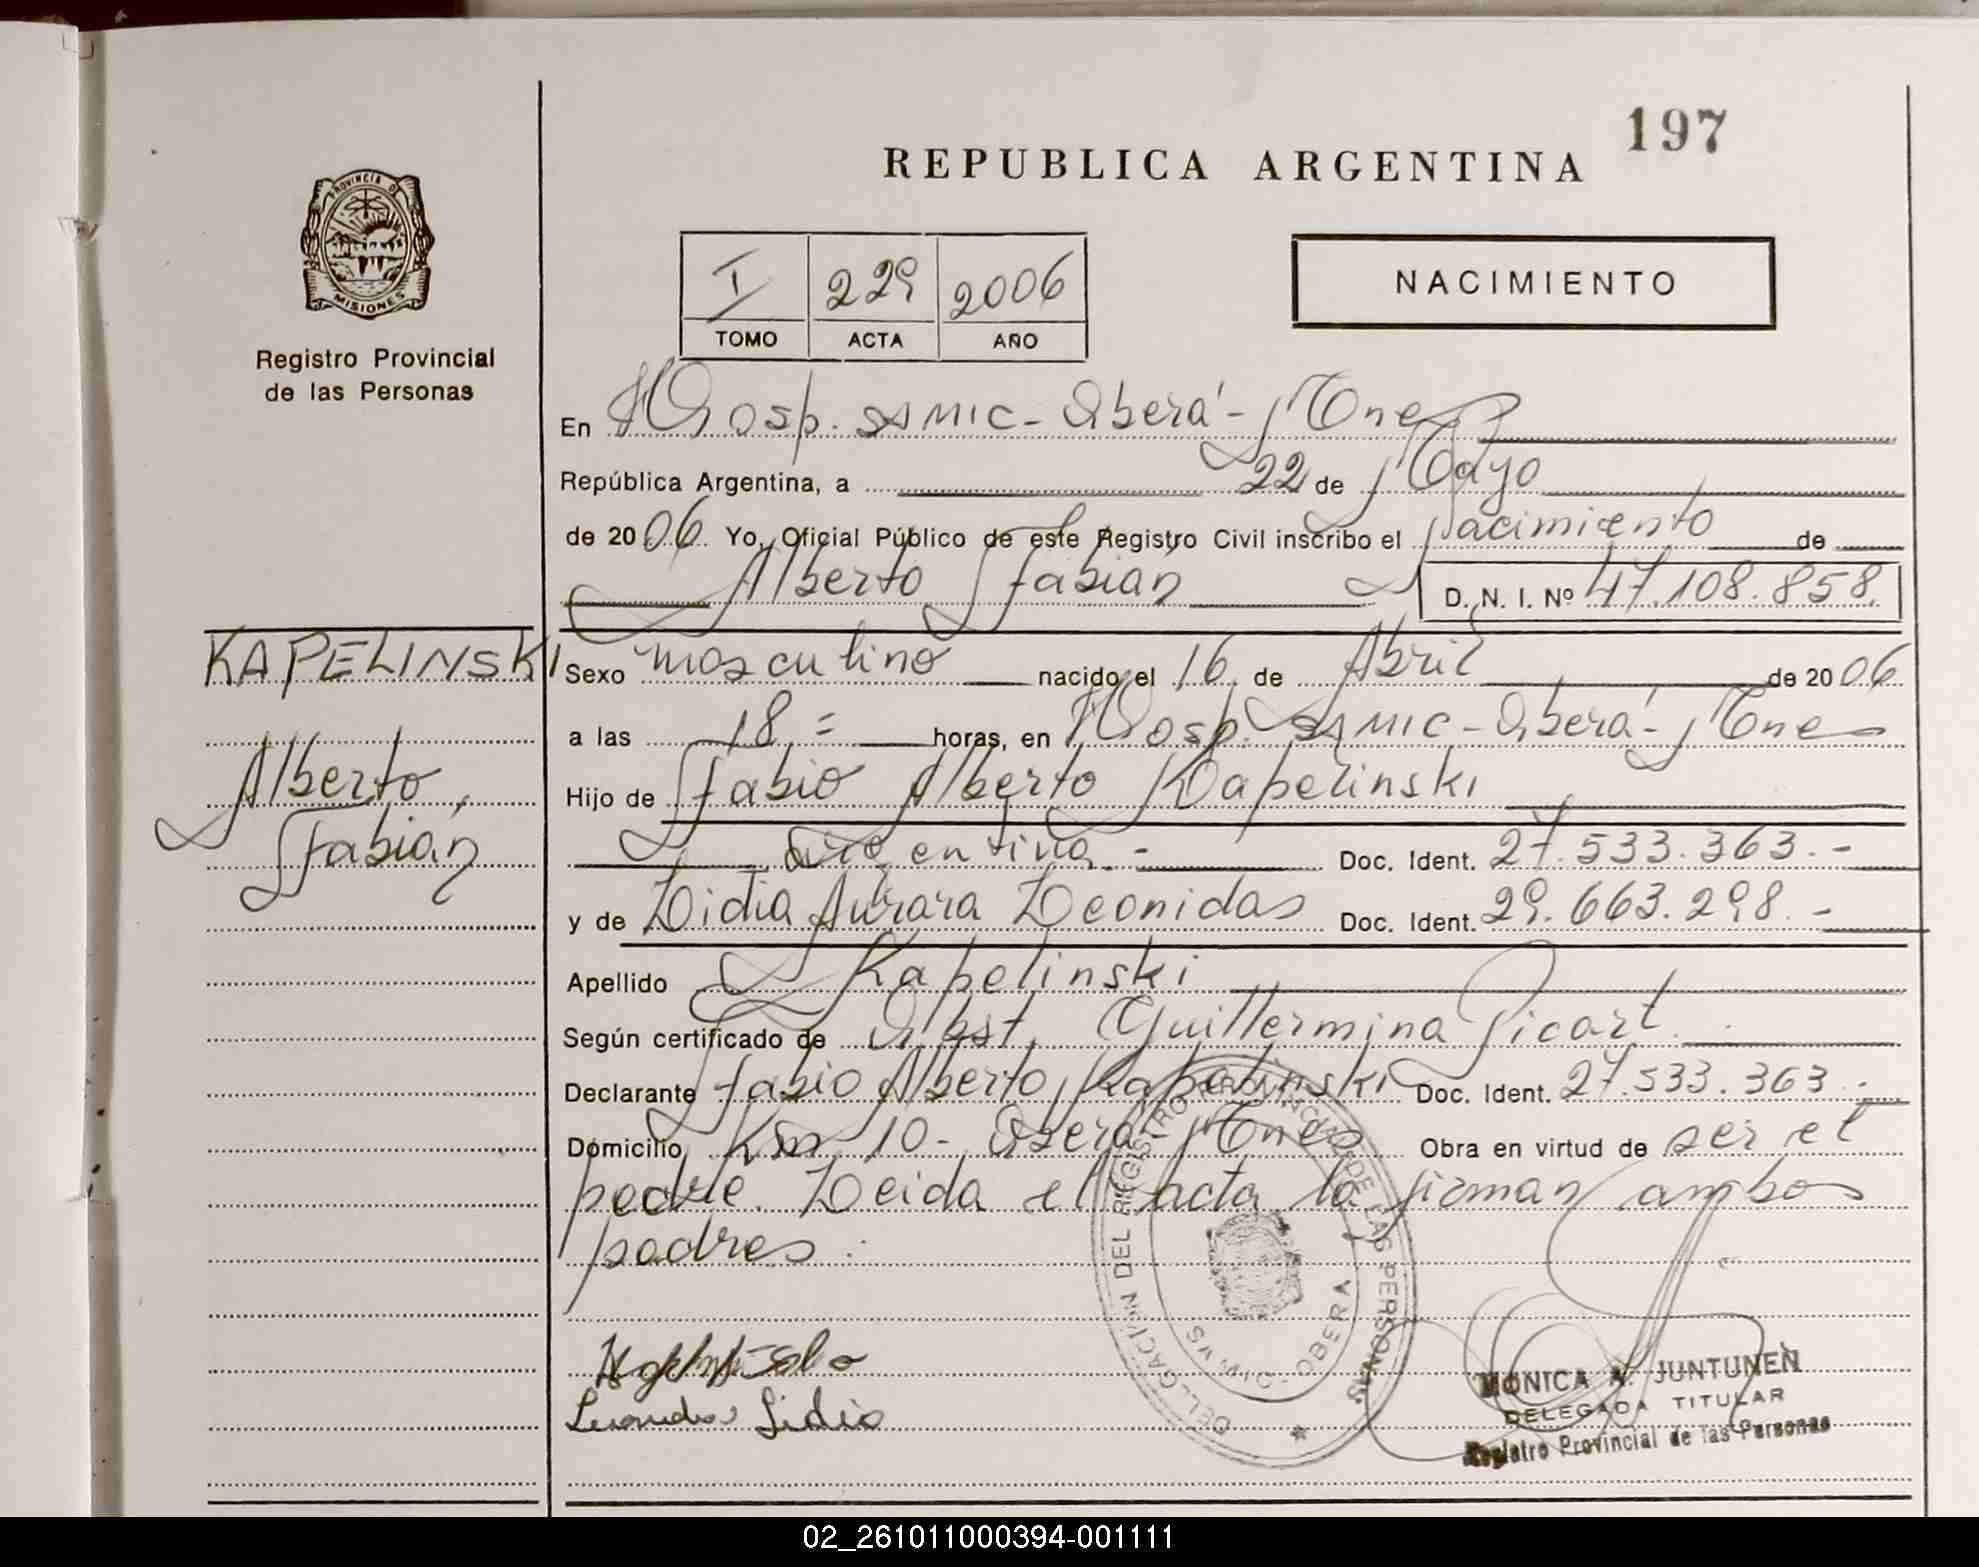 197
REPUBLICA ARGENTINA
PROVINCIA DE
MISIONES
Registro Provincial
de las Personas
I 229 2006
TOMO ACTA AÑO
NACIMIENTO
En Hosp. SAMIC - Oberá - Mnes
República Argentina, a 22 de Mayo
de 2006 Yo, Oficial Público de este Registro Civil inscribo el nacimiento de
Alberto Fabián D. N. I. Nº 47.108.858.
KAPELINSKI
Alberto
Fabián
Sexo masculino nacido el 16 de Abril de 2006
a las 18 = horas, en Hosp. SAMIC - Oberá - Mnes
Hijo de Fabio Alberto Kapelinski
argentina - Doc. Ident. 27.533.363.-
y de Lidia Aurora Leonidas Doc. Ident. 29.663.298.-
Apellido Kapelinski
Según certificado de Obst. Guillermina Picart
Declarante Fabio Alberto Kapelinski Doc. Ident. 27.533.363.-
Domicilio Km 10 - Oberá - Mnes Obra en virtud de ser el
padre. Leida el acta la firman ambos
padres.
Leonidas Lidia
DELEGACION DEL REGISTRO PROVINCIAL DE LAS PERSONAS
OBERA
MONICA A. JUNTUNEN
DELEGADA TITULAR
Registro Provincial de las Personas
02_261011000394-001111